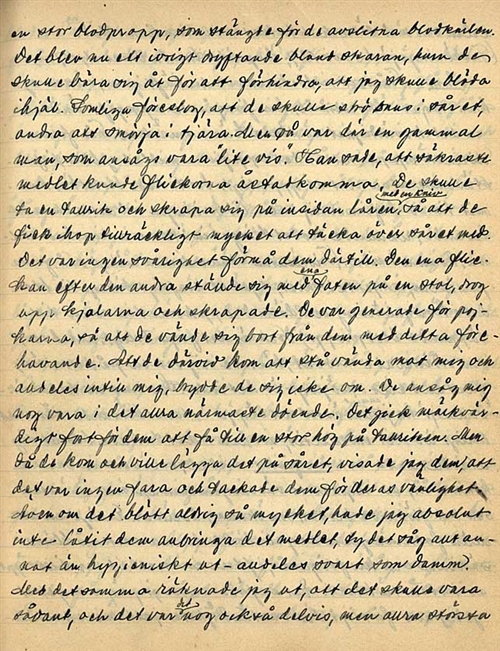 en stor blodpropp, som stängde för de avslitna blodkärlen.
Det blev nu ett ivrigt dryftande bland skaran, huru de
skulle bära sig åt för att förhindra, att jag skulle blöda
ihjäl. Somliga föreslog, att de skulle strö snus i såret,
andra att smörja i tjära. Men så var där en gammal
man, som ansågs vara "lite vis". Han sade, att säkraste
medlet kunde flickorna åstadkomma. De skulle
ta en tallrik och skrapa sig på insidan låren, med en kniv så att de
fick ihop tillräckligt mycket att täcka över såret med.
Det var ingen svårighet förmå dem därtill. Den ena flic-
kan efter den andra ställde sig med ena foten på en stol, drog
upp kjolarna och skrapade. De var generade för poj-
karna, så att de vände sig bort från dem med detta före-
havande. Att de därvid kom att stå vända mot mig och
alldeles intill mig, brydde de sig icke om. De ansåg mig
nog vara i det allra närmaste döende. Det gick märkvär-
digt fort för dem att få till en stor hög på tallriken. Men
då de kom och ville lägga det på såret, visade jag dem, att
det var ingen fara och tackade dem för deras vänlighet.
Även om det blött aldrig så mycket, hade jag absolut
inte låtit dem anbringa det medlet, ty det såg allt an-
nat än hygieniskt ut - alldeles svart som damm.
Med detsamma räknade jag ut, att det skulle vara
sådant, och det var det nog också delvis, men allra största